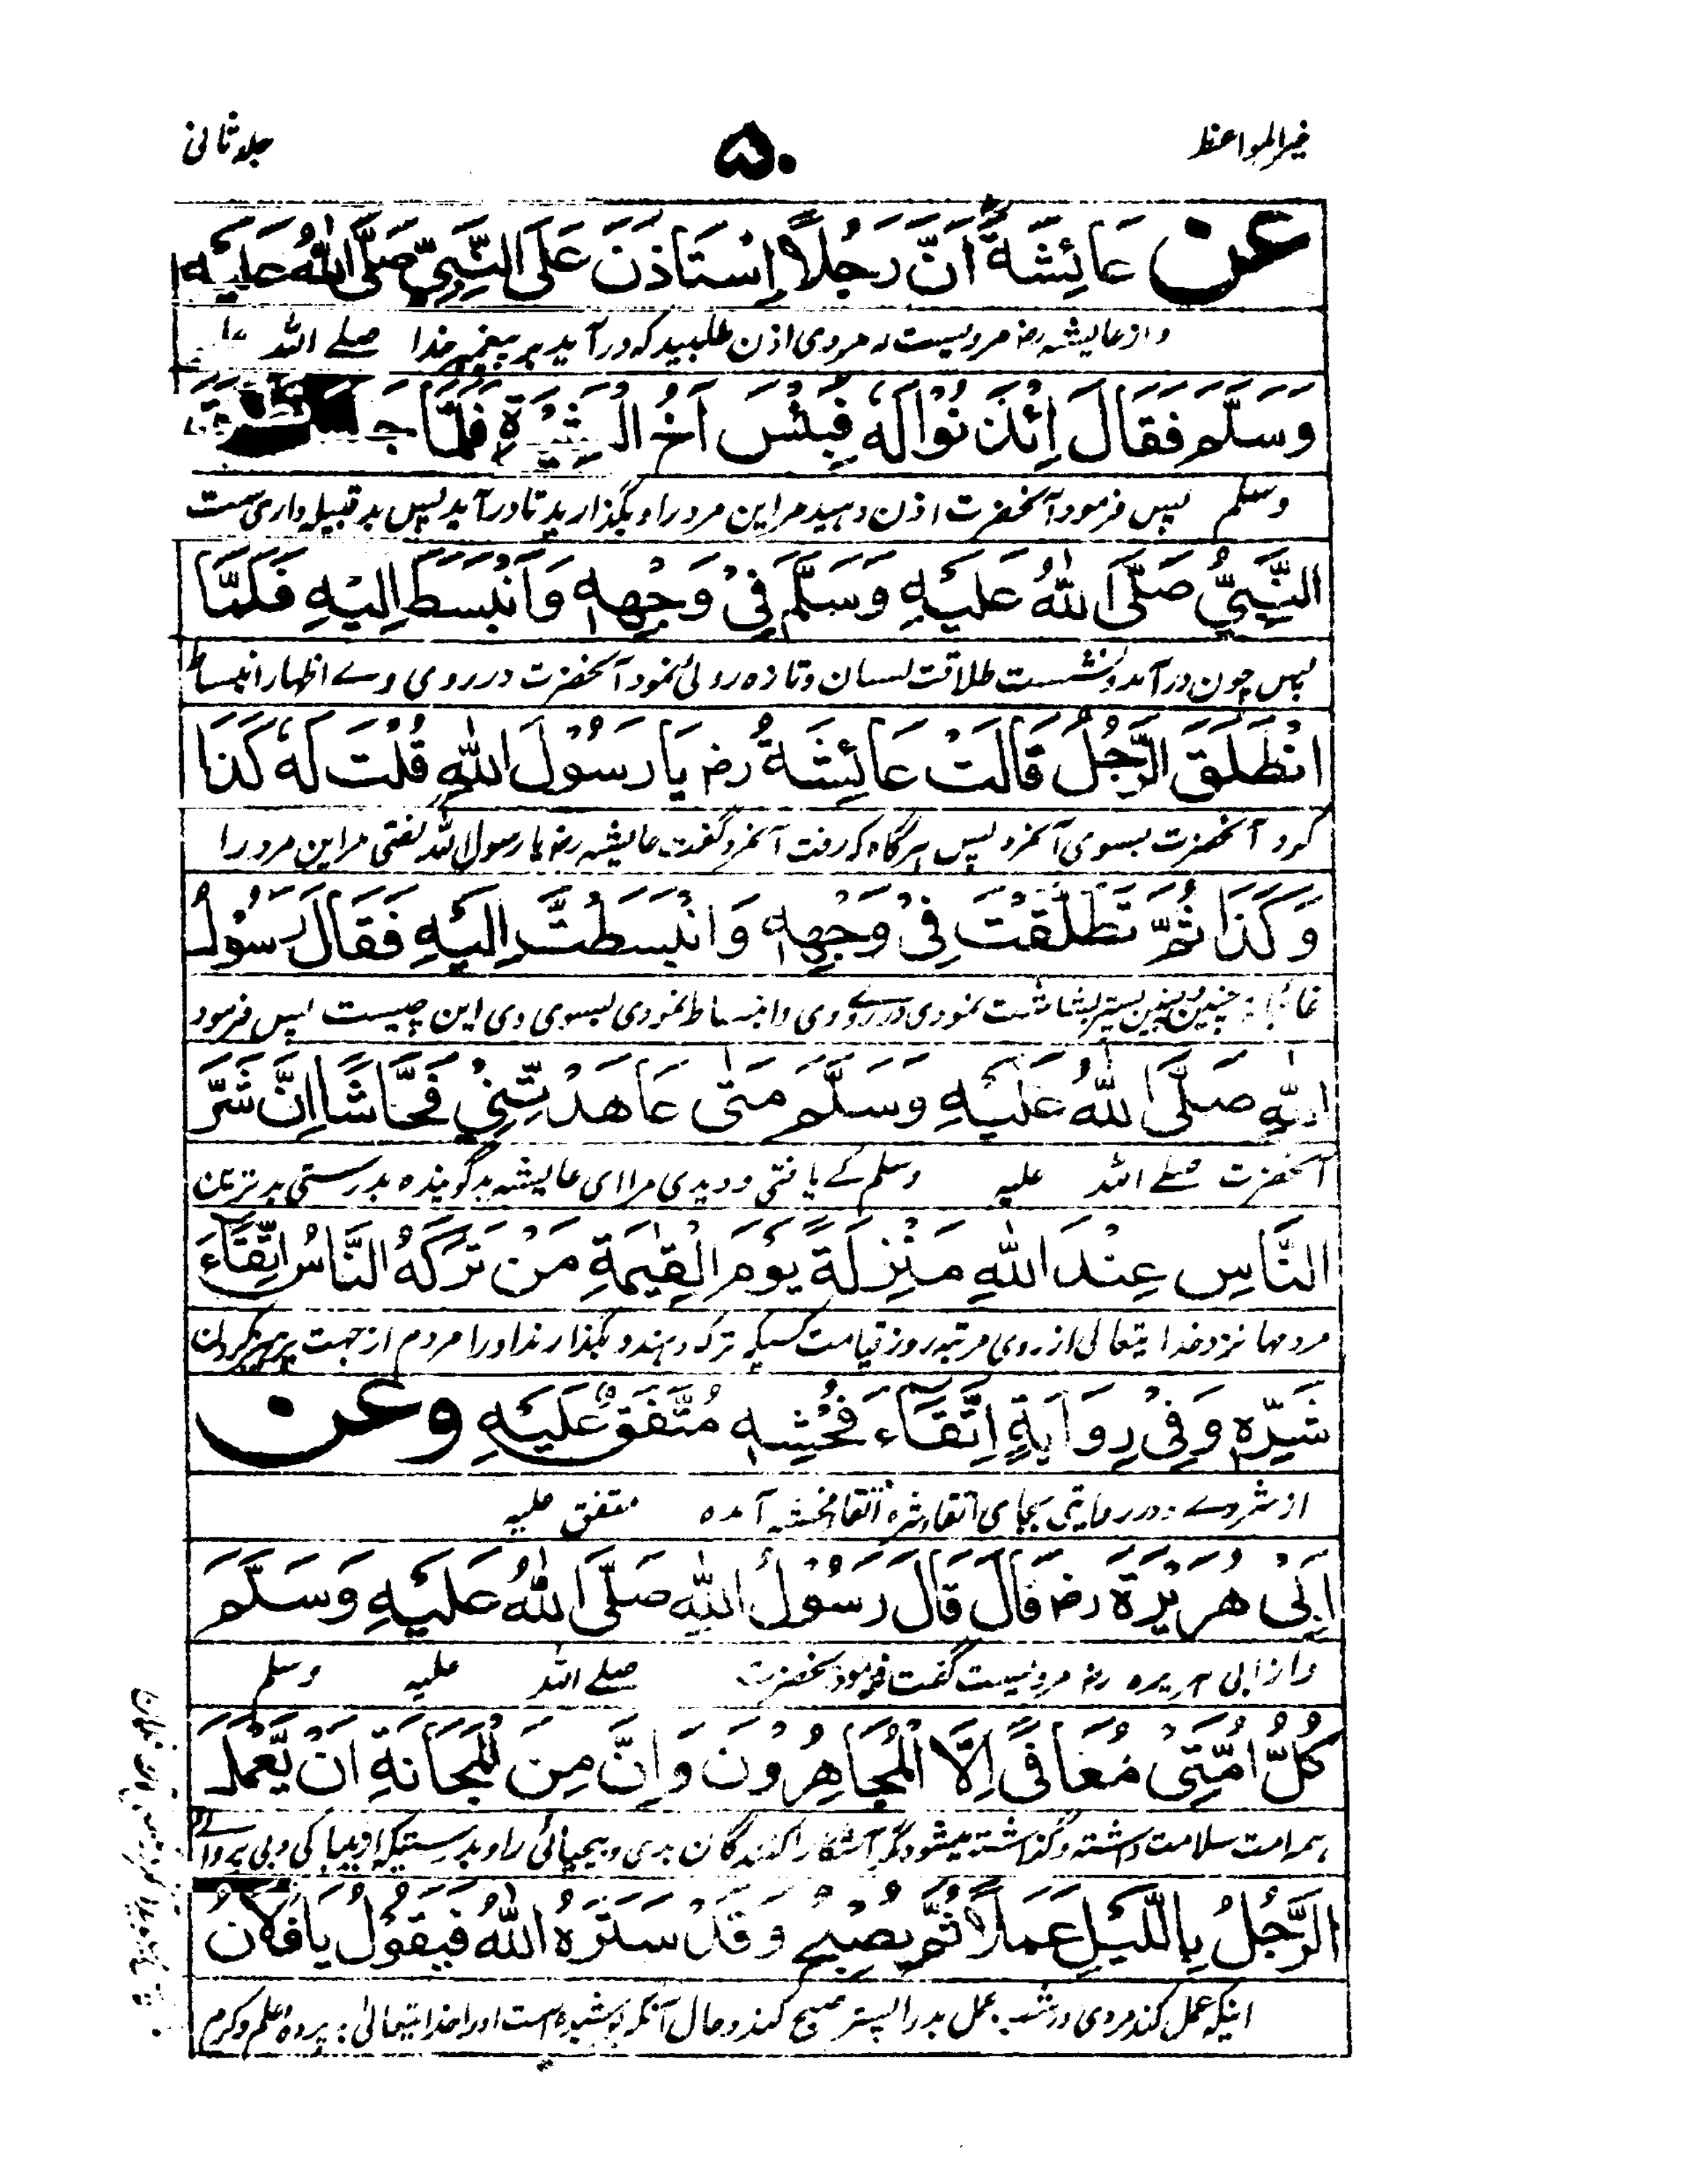 خیر المواعظ
۵۰
جلد ثانی
عن عَائِشَةَ اَنَّ رَجُلًا اِسْتَاذَنَ عَلَی النَّبِیِّ صَلَّی اللّٰهُ عَلَیْهِ
واز عایشه رضـ مرویست که مردی اذن طلبید که در آید بر پیغمبر خدا صلے الله
وَسَلَّمَ فَقَالَ اِئْذَنُوْا لَهٗ فَبِئْسَ اَخُ الْعَشِیْرَةِ فَلَمَّا
وسلم پس فرمود آنحضرت اذن دهید مر این مرد را و بگذارید تا در آید پس بد قبیله داری ست
النَّبِیُّ صَلَّی اللّٰهُ عَلَیْهِ وَسَلَّمَ فِیْ وَجْهِهٖ وَانْبَسَطَ اِلَیْهِ فَلَمَّا
پس چون در آمد و نشست طلاقت لسان و تازه روئی نمود آنحضرت در روی وے اظهار انبساط
انْطَلَقَ الرَّجُلُ قَالَتْ عَائِشَةُ رضـ یَا رَسُوْلَ اللّٰهِ قُلْتَ لَهٗ کَذَا
کرد آنحضرت بسوی آنمرد پس هرگاه که رفت آنمرد گفت عایشه رضـ یا رسول الله گفتی مر این مرد را
وَکَذَا ثُمَّ تَطَلَّقْتَ فِیْ وَجْهِهٖ وَانْبَسَطْتَّ اِلَیْهِ فَقَالَ رَسُوْلُ
چنین چنین پستر بشاشت نمودی در روے وی و انبساط نمودی بسوی وی این چیست پس فرمود
اللّٰهِ صَلَّی اللّٰهُ عَلَیْهِ وَسَلَّمَ مَتٰی عَاهَدْتِّنِیْ فَحَّاشًا اِنَّ شَرَّ
آنحضرت صلے الله علیه وسلم کے یافتی و دیدی مرا ای عایشه بدگوینده بدرستی بدترین
النَّاسِ عِنْدَ اللّٰهِ مَنْزِلَةً یَوْمَ الْقِیٰمَةِ مَنْ تَرَکَهُ النَّاسُ اتِّقَاءَ
مردمها نزد خدایتعالی از روی مرتبه روز قیامت کسیکه ترک دهند و بگذارند او را مردم از جهت پرهیز کردن
شَرِّهٖ وَفِیْ رِوَایَةٍ اِتِّقَاءَ فُحْشِهٖ مُتَّفَقٌ عَلَیْهِ وعن
از شر وے و در روایتی بجای اتقاء شره اتقاء فحشه آمده متفق علیه
اَبِیْ هُرَیْرَةَ رضـ قَالَ قَالَ رَسُوْلُ اللّٰهِ صَلَّی اللّٰهُ عَلَیْهِ وَسَلَّمَ
و از ابی هریره رضـ مرویست گفت فرمود آنحضرت صلے الله علیه وسلم
کُلُّ اُمَّتِیْ مُعَافًی اِلَّا الْمُجَاهِرُوْنَ وَاِنَّ مِنَ الْمَجَانَةِ اَنْ یَّعْمَلَ
همه امت سلامت داشته و گذاشته میشود مگر آشکارا کنندگان بدی و بیحیائی را و بدرستیکه از بیباکی و بی پروائے
الرَّجُلُ بِاللَّیْلِ عَمَلًا ثُمَّ یُصْبِحُ وَقَدْ سَتَرَهُ اللّٰهُ فَیَقُوْلُ یَا فُلَانُ
اینکه عمل کند مردی در شب عمل بد را پستر صبح کند و حال آنکه پوشیده است او را خدایتعالی بپرده حلم و کرم